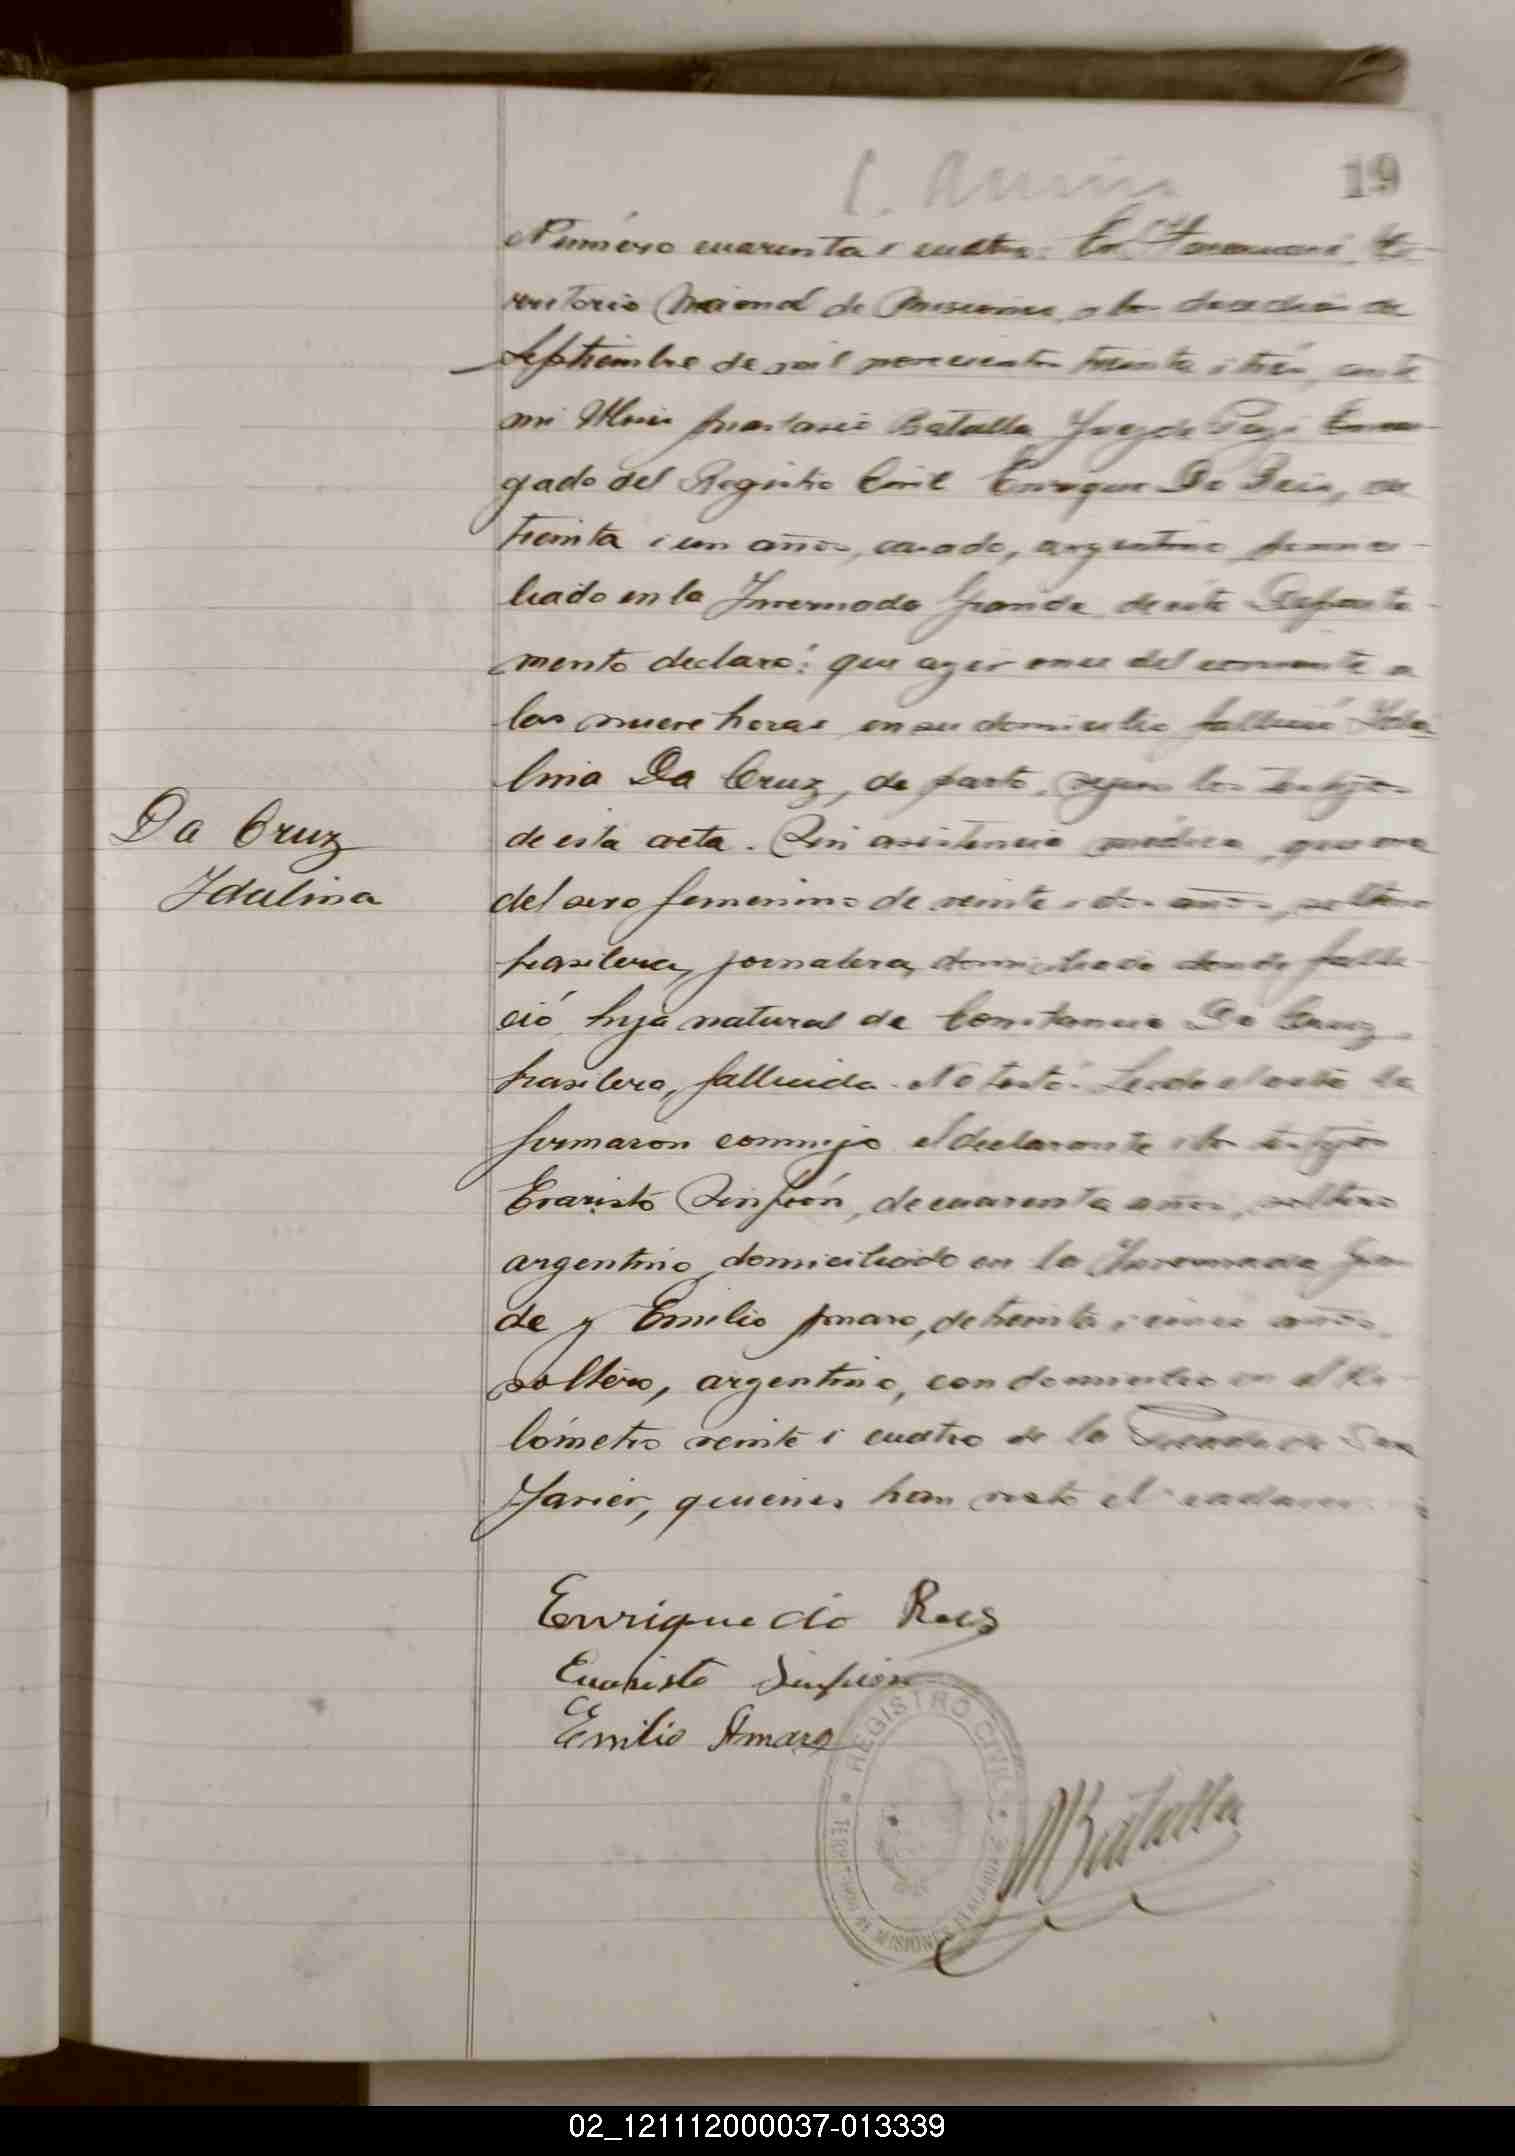 19
Número cuarenta i cuatro: En
rritorio Nacional de Misiones, a los doce dias de
Septiembre de mil novecientos treinta i tres, ante
mi Anastasio Batalla Juez de Paz i Encar-
gado del Registro Civil Enrique Do Reis, de
treinta i un años, casado, argentino domici-
liado en la Invernada Grande de este Departa-
mento declaró: que ayer once del corriente a
las nueve horas en su domicilio falleció Ida-
lina Da Cruz, de parto, segun los testigos
de esta acta. Sin asistencia médica, que era
del sexo femenino de veinte i dos años, soltera
brasilera, jornalera, domiciliada donde falle-
ció, hija natural de Constancia Da Cruz
brasilera, fallecida. No testó. Leida el acta la
firmaron conmigo el declarante i los testigos
Evaristo Sinfrón, de cuarenta años, soltero
argentino, domiciliado en la Invernada Gran-
de y Emilio Amaro, de treinta i cinco años,
soltero, argentino, con domicilio en el Ki-
lómetro veinte i cuatro de la Picada de San
Javier, quienes han visto el cadaver.
Da Cruz
Idalina
Enrique do Reis
Evaristo
Emilio Amaro
REGISTRO CIVIL
MBatalla
02_121112000037-013339